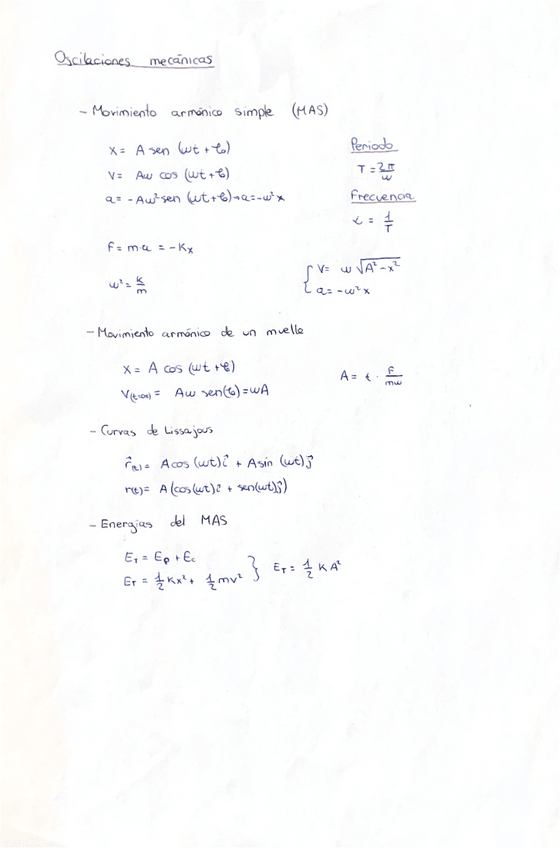 Oscilaciones mecánicas
- Movimiento armónico simple (MAS)
x = A sen (ωt + φ₀)
Periodo
v = Aω cos (ωt + φ)
T = 2π/ω
a = -Aω² sen (ωt + φ) → a = -ω²x
Frecuencia
f = 1/T
F = m·a = -Kx
ω² = K/m
{ v = ω √(A² - x²)
a = -ω²x
- Movimiento armónico de un muelle
x = A cos (ωt + φ)
A = t · F/mω
Aω sen(φ) = ωA
- Curvas de Lissajous
r⃗(t) = A cos (ωt) i⃗ + A sin (ωt) j⃗
r(t) = A (cos(ωt) i⃗ + sen(ωt) j⃗)
- Energias del MAS
E_T = E_p + E_c
E_T = 1/2 Kx² + 1/2 mv² } E_T = 1/2 KA²